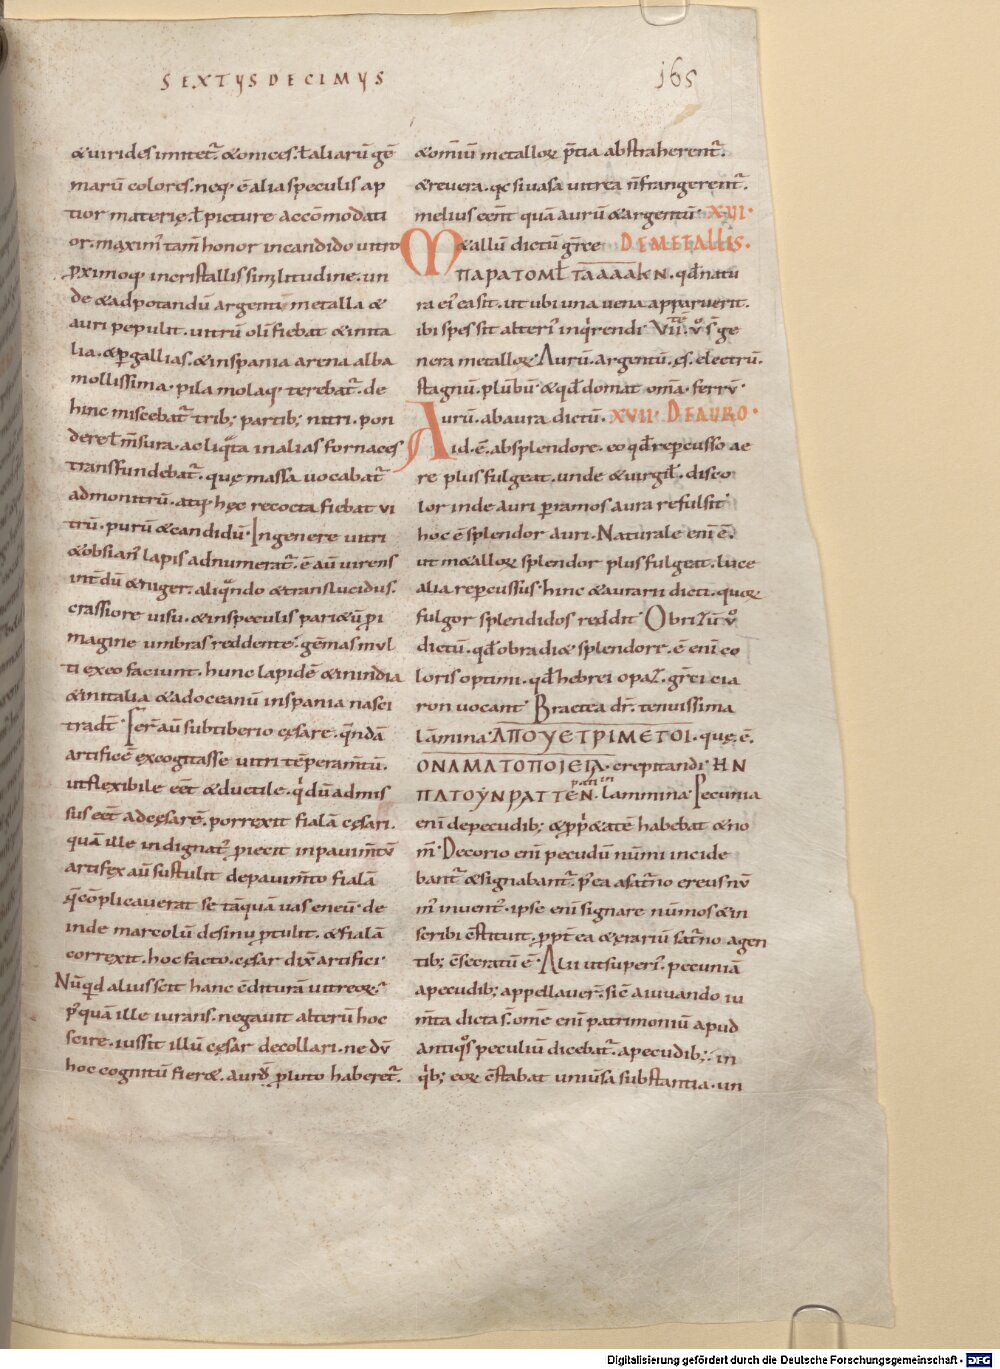 SEXTUS DECIMUS
165
&uirides imitet̄. &onices. ł aliarū gē
marū colores. neq; ē alia speculis ap
tior materię. ł picture accōmodati
or. maxim̄ tam̄ honor incandido uitro
ꝓximoq; incristallis similitudine. un
de & adpotandū argenti metalla &
auri pepulit. uitrū olī fiebat & inita
lia. & ꝑ gallias. & inspania arena alba
mollissima. pila molaq; terebat̄. de
hinc miscebat̄ trib; partib; nitri. pon
dere ł m̄sura. ac liq̇ta inalias fornaces
transfundebat̄. quę massa uocabat̄
admonitrū. atq; hęc recocta fiebat ui
trū. purū & candidū. Ingenere uitri
& obsian̄ lapis adnumerat̄. ē aū uirens
int̄dū & niger. aliqn̄do & translucidus.
crassiore uisu. & inspeculis pari&ū ꝓ i
magine umbras reddente. gēmas mul
ti exeo faciunt. hunc lapidē & inindia
& initalia & adoceanū inspania nasci
tradt̄. Fer̄ aū subtiberio cęsare. qn̄dā
artificē excogitasse uitri tēperam̄tū.
ut flexibile eēt & ductile. q̇ dū admis
sus eēt adcęsarē. porrexit fialā cęsari.
quā ille indignat̄ ꝓiecit inpauim̄tū
artifex aū sustulit depauim̄to fialā
q̄ cōplicauerat se tāquā uas eneū. de
inde marcolū desinu ꝓtulit. & fialā
correxit. hoc facto. cęsar dix̄ artifici.
Nūqd alius scit hanc cditurā uitreoꝝ.
p̄quā ille iurans. negauit alterū hoc
scire. iussit illū cęsar decollari. ne dū
hoc cognitū fier&. aurū ꝓ luto haberet̄.
& om̄iū metalloꝝ p̄tia abstraherent̄.
& reuera. qe si uasa uitrea n̄ frangerent̄.
melius eent̄ quā aurū & argentū. XVI.
M&allū dictū grēce DE METALLIS.
ΠΑΡΑΤΟΜ ł ΤΑΑΛΑΚΝ. qd̄ natu
ra ei ea sit. ut ubi una uena apparuerit.
ibi spes sit alteri inq̇rendi. VII. ū s̄ ge
nera metalloꝝ. Aurū. argentū. ęs. electrū.
stagnū. plūbū. & qd̄ domat om̄a. ferrū.
Aurū. ab aura dictū. XVII. DE AURO.
id. ē. absplendore. eo qd̄ repercusso ae
re plus fulgeat. unde & uirgil. disco
lor inde auri ꝑ ramos aura refulsit
hoc ē splendor auri. Naturale eni ē.
ut m&alloꝝ splendor plus fulgeat. luce
alia repercussus. hinc & aurarii dicti. quoꝝ
fulgor splendidos reddit. Obrizū ū
dictū. qd̄ obradi& splendore. ē eni co
loris optimi. qd̄ hebrei opaz. grēci cia
ron uocant. Bractea dr̄. tenuissima
lāmina. ΑΠΟΥΕΤΡΙΜΕΤΟΙ. quę. ē.
ΟΝΑΜΑΤΟΠΟΙΕΙΑ. crepitandi. ΗΝ
ΠΛΤΟΥΝΡΑΤΤΕΝ. lammina. Pecunia
eni depecudib; & ꝓp̄&atē habebat & no
m̄. Decorio eni pecudū nūmi incide
bant̄ & signabant̄. p̄ ea asat̄no ereus nū
m̄ inuent̄. ipse eni signare nūmos & in
scribi c̄stituit. ꝓpt̄ ea & erariū sat̄no agen
tib; c̄secratū ē. Alii ut superi. pecuniā
apecudib; appellauer̄. sic̄ aiuuando iu
m̄ta dicta s̄. om̄e eni patrimoniū apud
antiqos peculiū dicebat̄. apecudib;. in
q̇b; eoꝝ c̄stabat uniūsa substantia. un
Digitalisierung gefördert durch die Deutsche Forschungsgemeinschaft - DFG